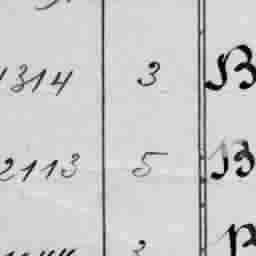 1314 3 B
2113 5 B